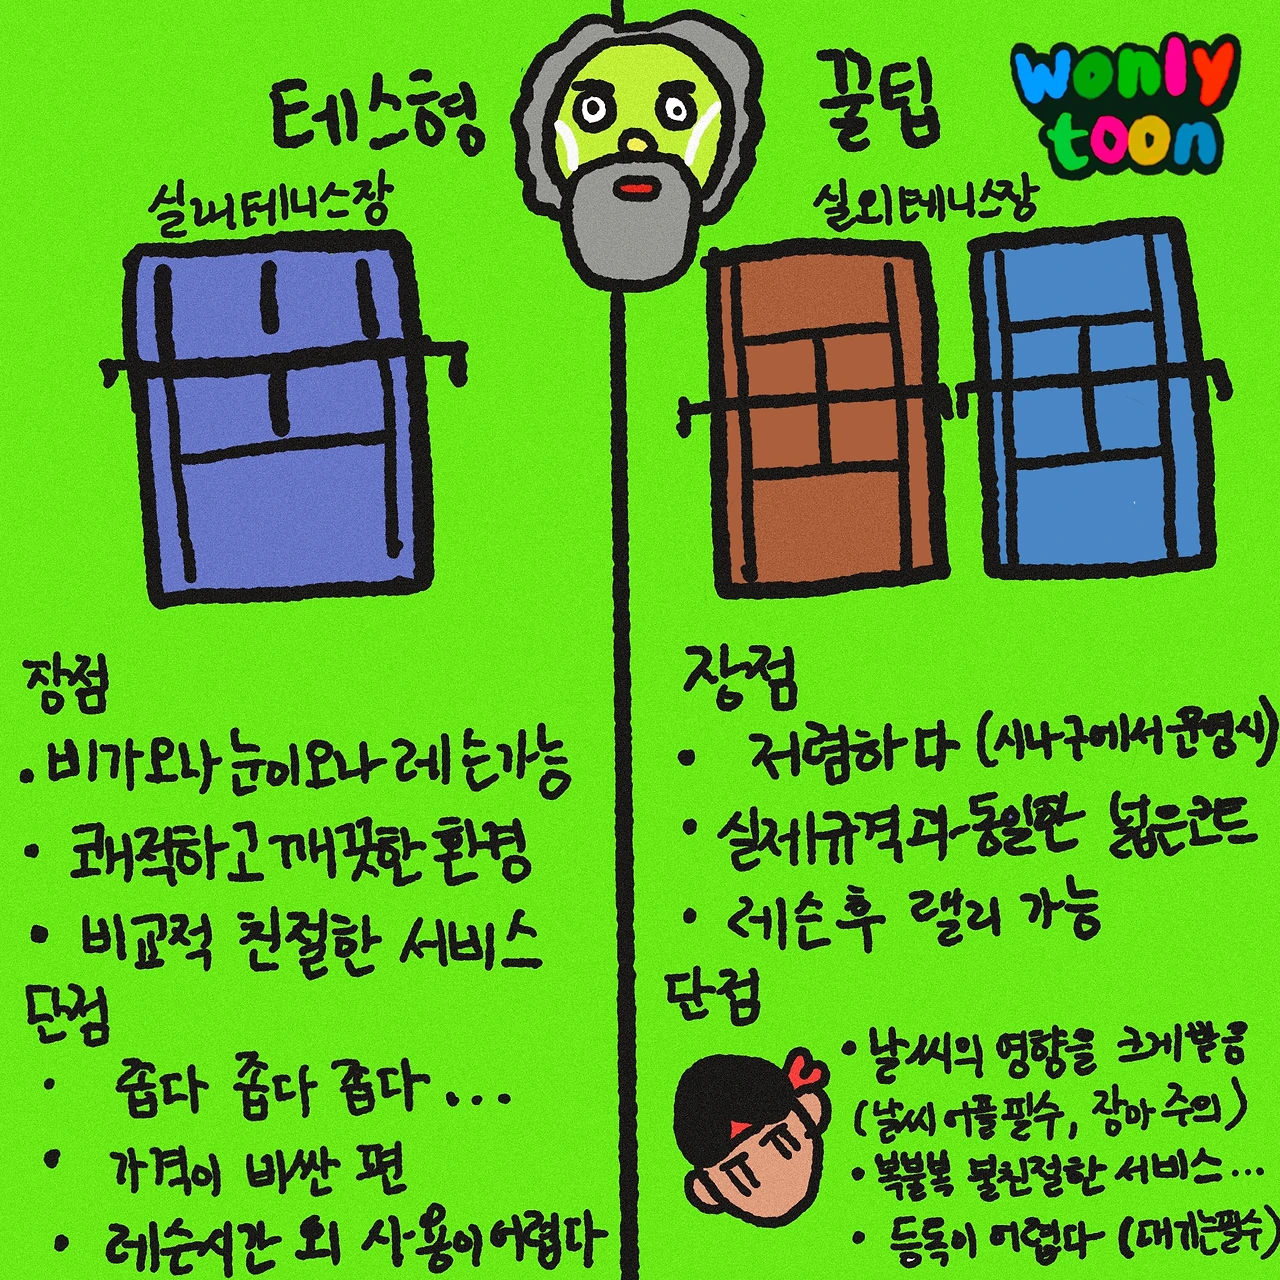 테스형 꿀팁
wonly
toon
실내테니스장
장점
. 비가오나 눈이오나 레슨가능
• 쾌적하고 깨끗한 환경
• 비교적 친절한 서비스
단점
• 좁다 좁다 좁다...
• 가격이 비싼 편
• 레슨시간 외 사용이 어렵다
실외테니스장
장점
• 저렴하다 (시나 구에서 운영시)
• 실제규격과 동일한 넓은코트
• 레슨 후 랠리 가능
단점
• 날씨의 영향을 크게 받음
(날씨 어플 필수, 장마 주의)
• 복불복 불친절한 서비스...
• 등록이 어렵다 (대기는필수)